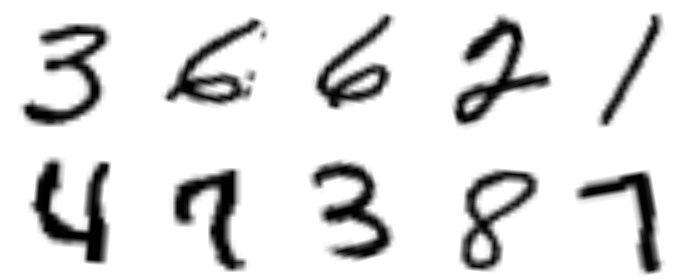 3 6 6 2 1
4 7 3 8 7